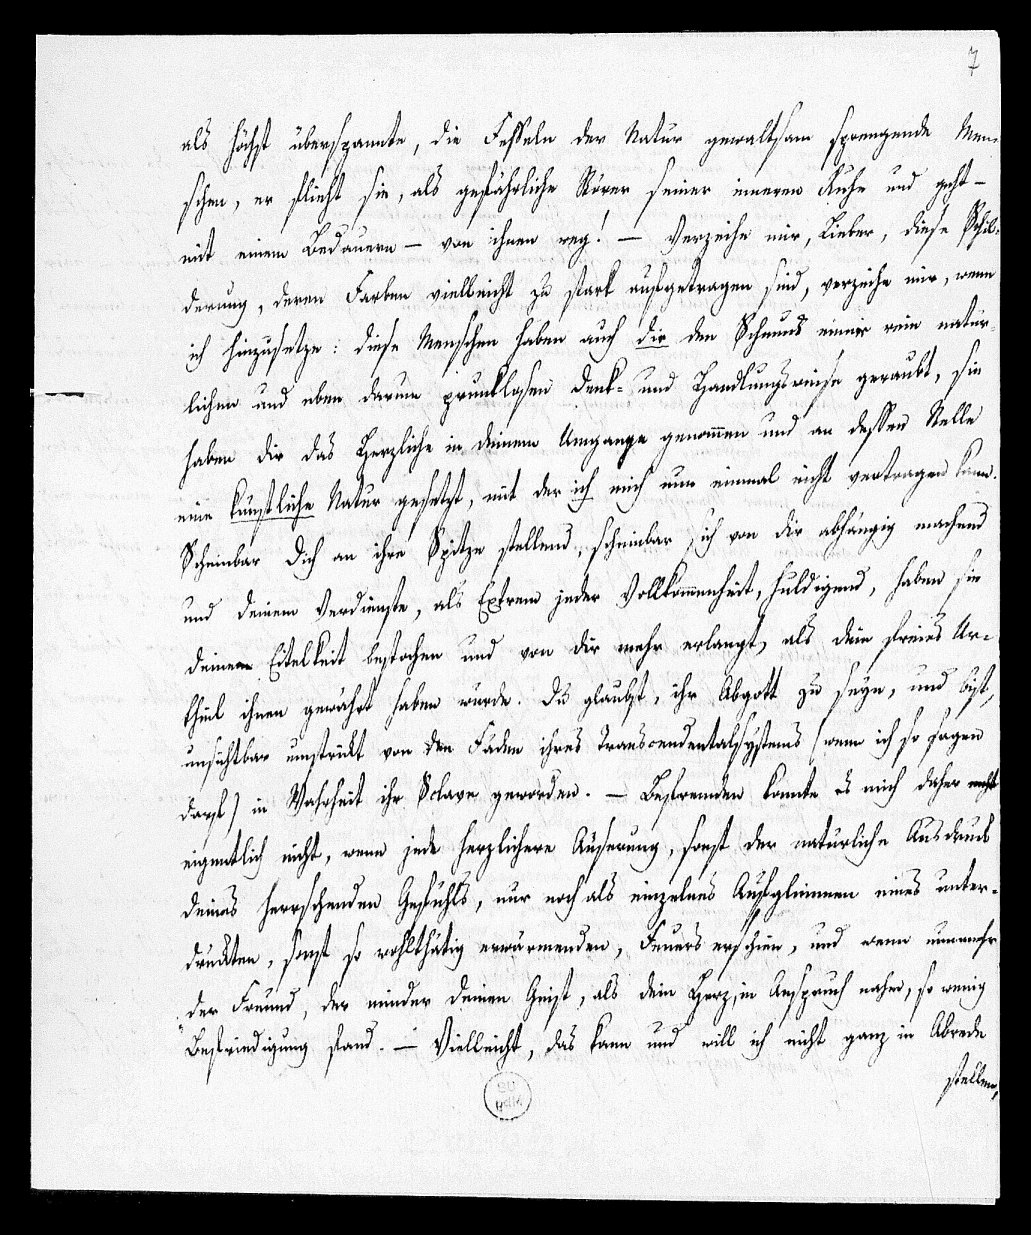 7
als höchst überspannte, die Fesseln der Natur gewaltsam sprengende Men-
schen, er flieht sie, als gefährliche Störer seiner inneren Ruhe und geht –
mit einem Bedauern – von ihnen weg! – Verzeihe mir, Lieber, diese Schil-
derung, deren Farben vielleicht zu stark aufgetragen sind, verzeihe mir, wenn
ich hinzusetze: diese Menschen haben auch dir den Schmuck einer rein natür-
lichen und eben darum prunklosen Denk- und Handlungsweise geraubt, sie
haben dir das Herzliche in deinem Umgange genommen und an dessen Stelle
eine künstliche Natur gesetzt, mit der ich mich nun einmal nicht vertragen kann.
Scheinbar dich an ihre Spitze stellend, scheinbar sich von dir abhängig machend
und deinem Verdienste, als Extrem jeder Vollkommenheit, huldigend, haben sie
deine Eitelkeit bestochen und von dir mehr erlangt, als dein freies Ur-
theil ihnen gewährt haben würde. Du glaubst, ihr Abgott zu seyn, und bist,
unsichtbar umstrickt von den Fäden ihres Transcendentalsystems (wenn ich so sagen
darf) in Wahrheit ihr Sclave geworden. – Befremden konnte es mich daher
eigentlich nicht, wenn jede herzlichere Äußerung, sonst der natürliche Ausdruck
deines herrschenden Gefühls, nur noch als einzelnes Aufglimmen eines unter-
drückten, sonst so wohlthätig erwärmenden, Feuers erschien, und wenn nunmehr
der Freund, der minder deinen Geist, als dein Herz, in Anspruch nahm, so wenig
Befriedigung fand. – Vielleicht, das kann und will ich nicht ganz in Abrede
stellen,